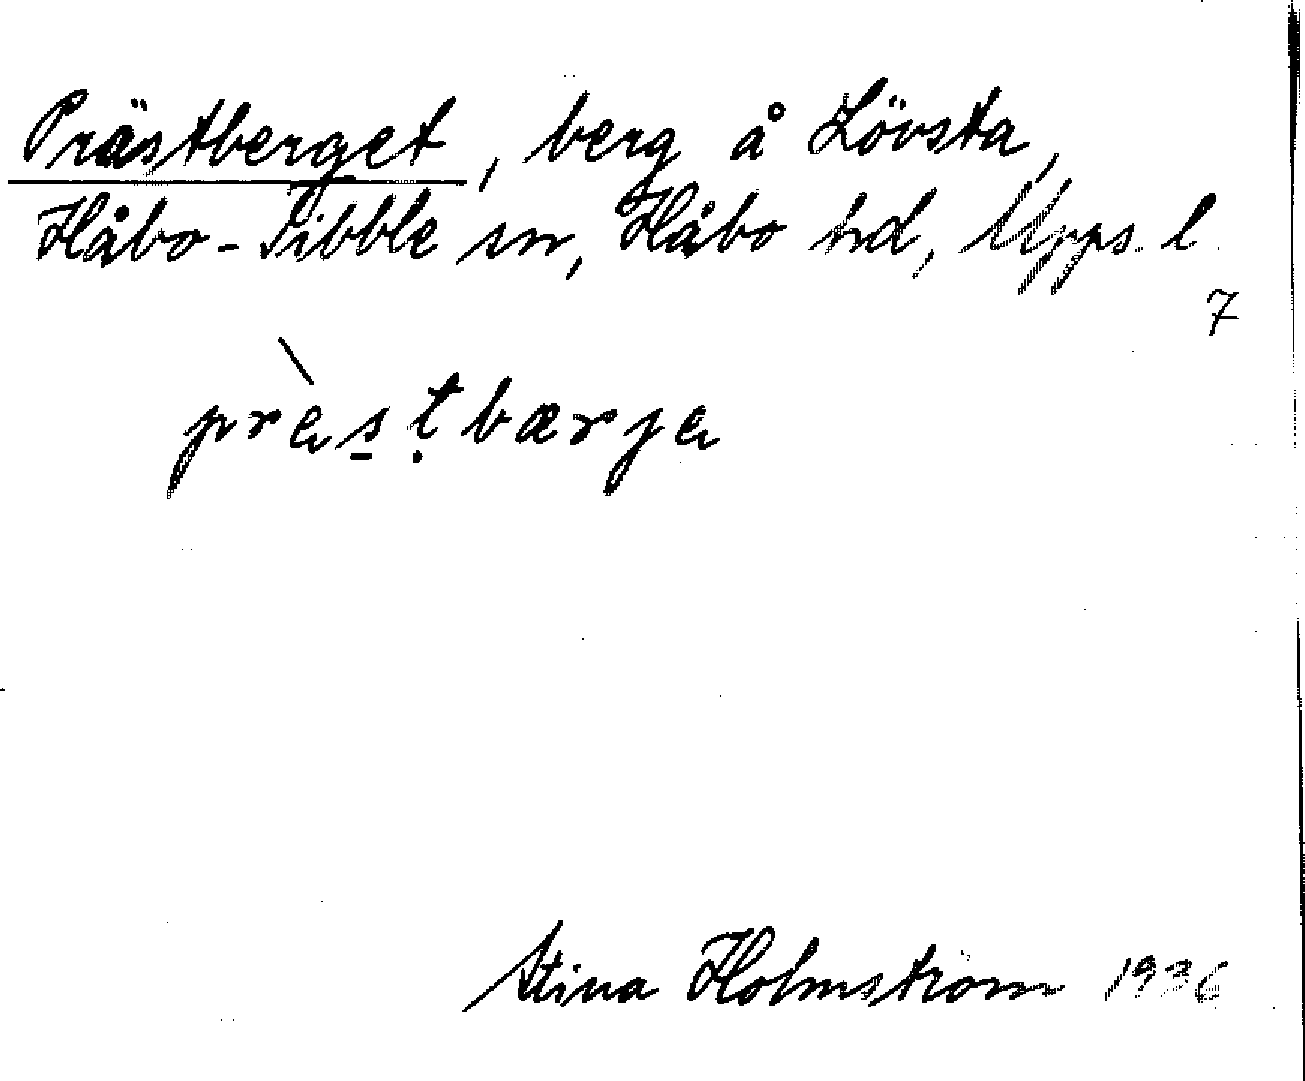 Prästberget, berg å Lövsta,
Håbo-Tibble sn, Håbo hd, Upps. l
7
prèṣṭbærje
Stina Holmström 1936